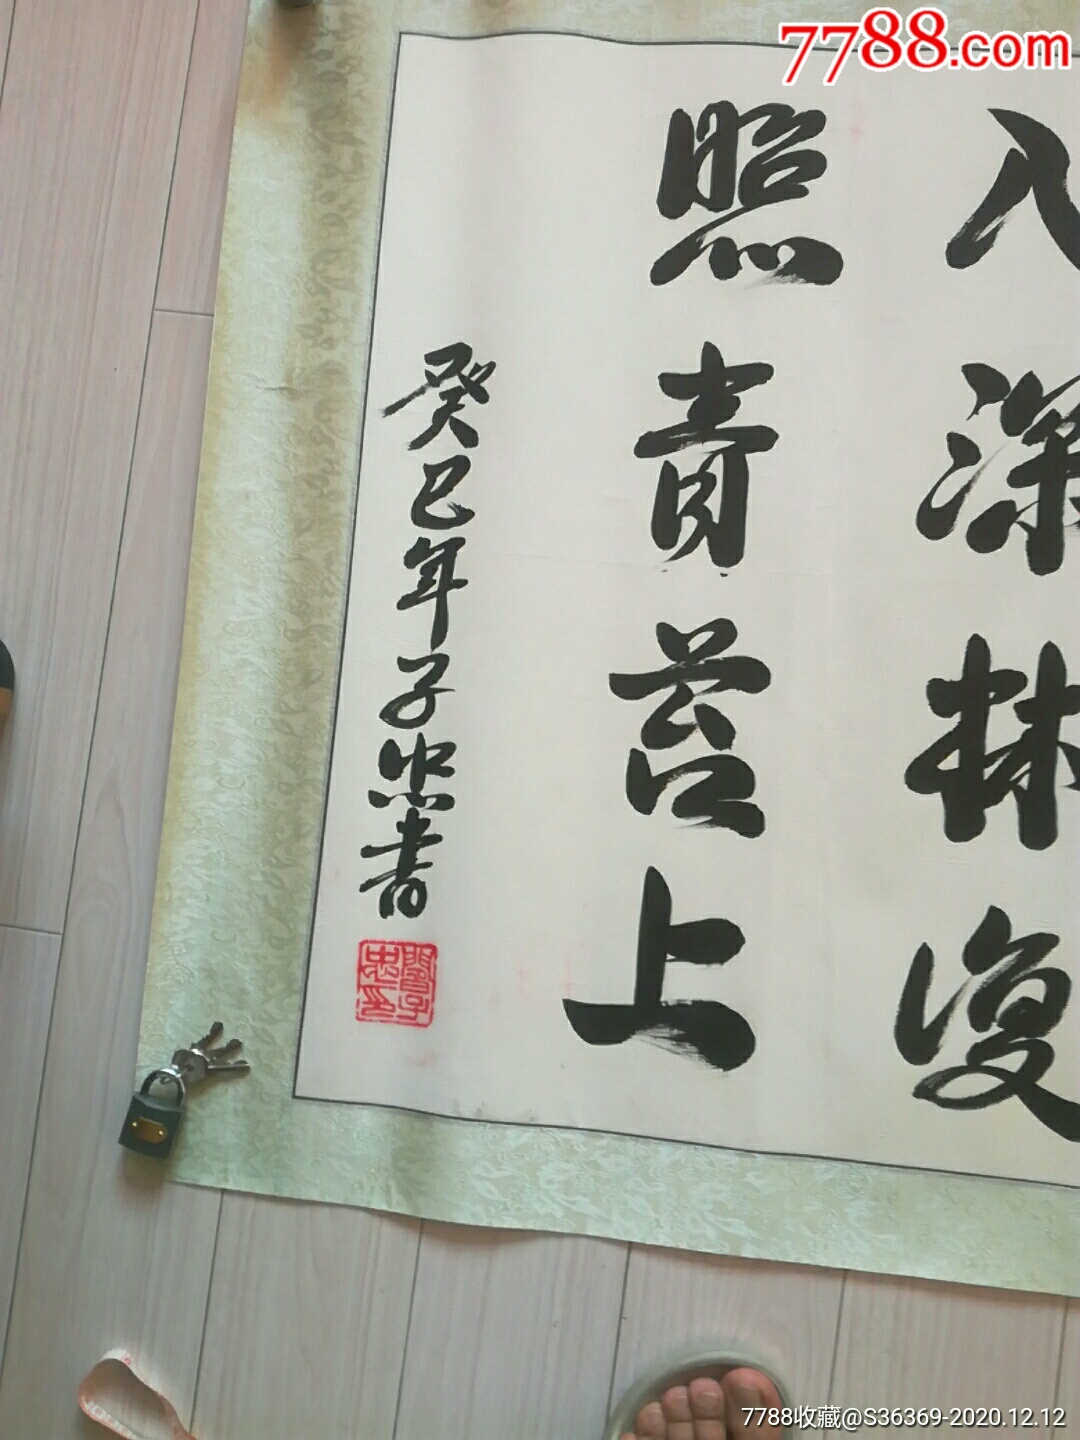 7788.com
入深林復
照青苔上
癸巳年子忠書
7788收藏@S36369-2020.12.12